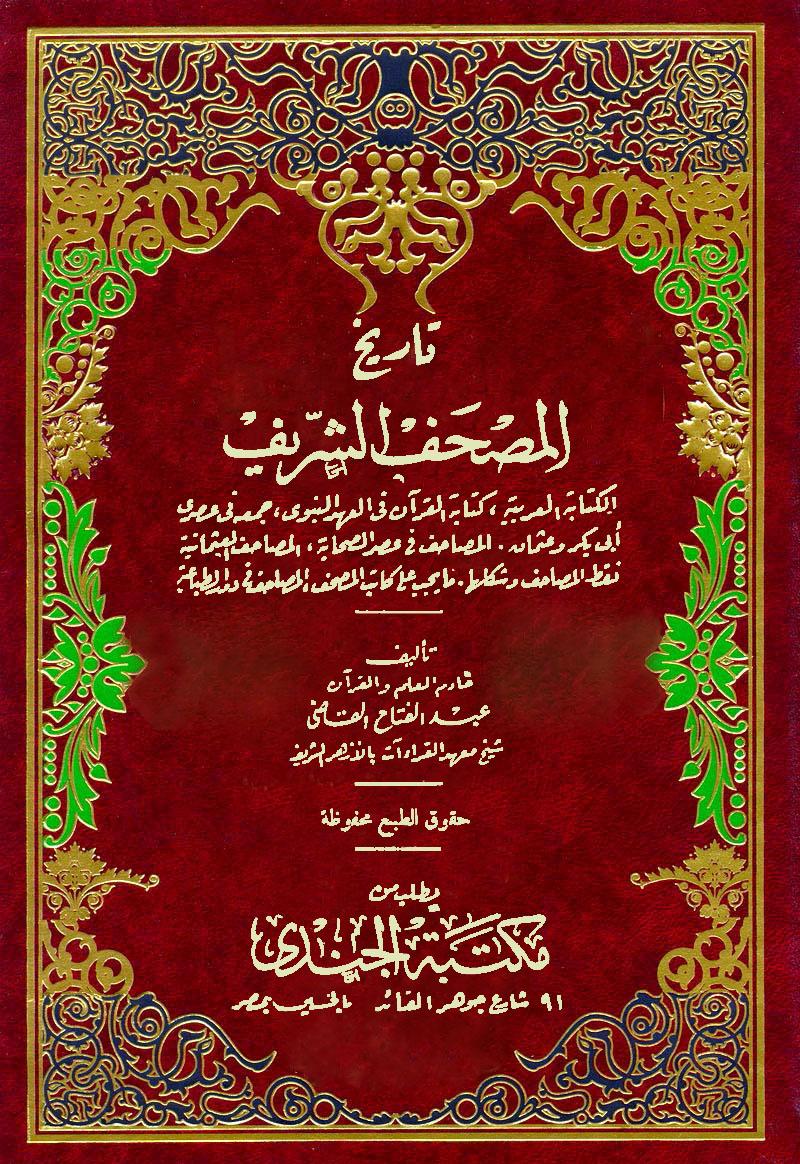 تاريخ
المصحف الشريف
الكتابة العربية ، كتابة القرآن فى العهد النبوى ، جمعه فى عصرى
أبى بكر وعثمان . المصاحف فى عصر الصحابة ، المصاحف العثمانية
نقط المصاحف وشكلها . ما يجب على كاتب المصحف ، المصاحف فى دور الطباعة
تأليف
خادم العلم والقرآن
عبد الفتاح القاضى
شيخ معهد القراءات بالأزهر الشريف
حقوق الطبع محفوظة
يطلب من
مكتبة الجندى
٩١ شارع جوهر القائد بالحسين بمصر